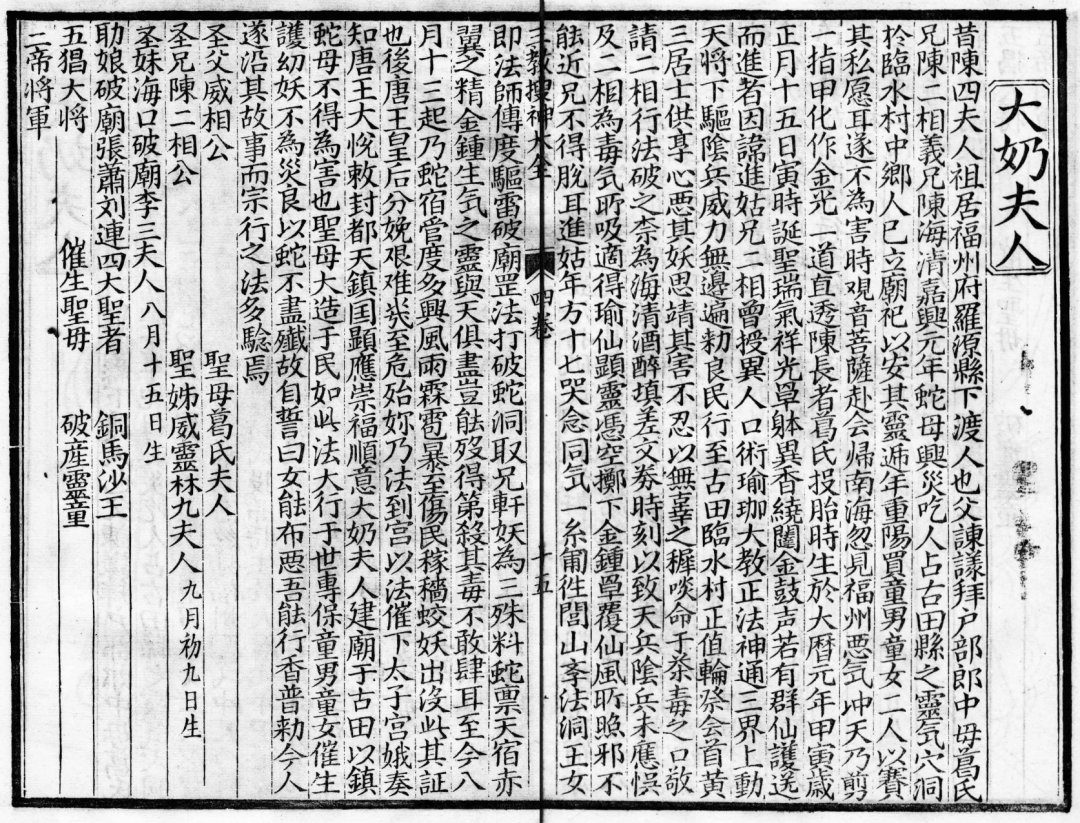 大奶夫人
昔陳四夫人祖居福州府羅源縣下渡人也父諫議拜户部郎中母葛氏
兄陳二相義兄陳海清嘉興元年蛇母興災吃人占古田縣之靈氣穴洞
於臨水村中鄉人已立廟祀以安其靈遞年重陽買童男童女二人以賽
其私愿耳遂不為害時观音菩薩赴会帰南海忽見福州悪气冲天乃剪
一指甲化作金光一道直透陳長者葛氏投胎時生於大曆元年甲寅歲
正月十五日寅時誕聖瑞氣祥光罩躰異香繞闥金鼓声若有群仙護送
而進者因諱進姑兄二相曾授異人口術瑜珈大教正法神通三界上動
天將下驅陰兵威力無邊遍勑良民行至古田臨水村正值輪祭会首黄
三居士供享心悪其妖思靖其害不忍以無辜之穉啖命于荼毒之口敬
請二相行法破之柰為海清酒醉填差文券時刻以致天兵陰兵未應悞
及二相為毒气所吸適得瑜仙顯靈憑空擲下金鍾罩覆仙風所照邪不
能近兄不得脫耳進姑年方十七哭念同气一糸匍徃閭山斈法洞王女
三教搜神大全 四卷 十五
即法師傳度驅雷破廟罡法打破蛇洞取兄軒妖為三殊料蛇禀天宿赤
翼之精金鍾生气之靈與天俱盡豈能殁得第殺其毒不敢肆耳至今八
月十三起乃蛇宿管度多興風雨霖雹暴至傷民稼穡蛟妖出没此其証
也後唐王皇后分娩艰难㡬至危殆妳乃法到宫以法催下太子宫娥奏
知唐王大悅敕封都天鎮国顯應崇福順意大奶夫人建廟于古田以鎮
蛇母不得為害也聖母大造于民如此法大行于世專保童男童女催生
護幼妖不為災良以蛇不盡殲故自誓曰女能布悪吾能行香普勑今人
遂沿其故事而宗行之法多驗焉
圣父威相公 聖母葛氏夫人
圣兄陳二相公 聖姊威靈林九夫人 九月初九日生
圣妹海口破廟李三夫人 八月十五日生
助娘破廟張蕭刘連四大聖者 銅馬沙王
五猖大将 催生聖母 破産靈童
二帝將軍